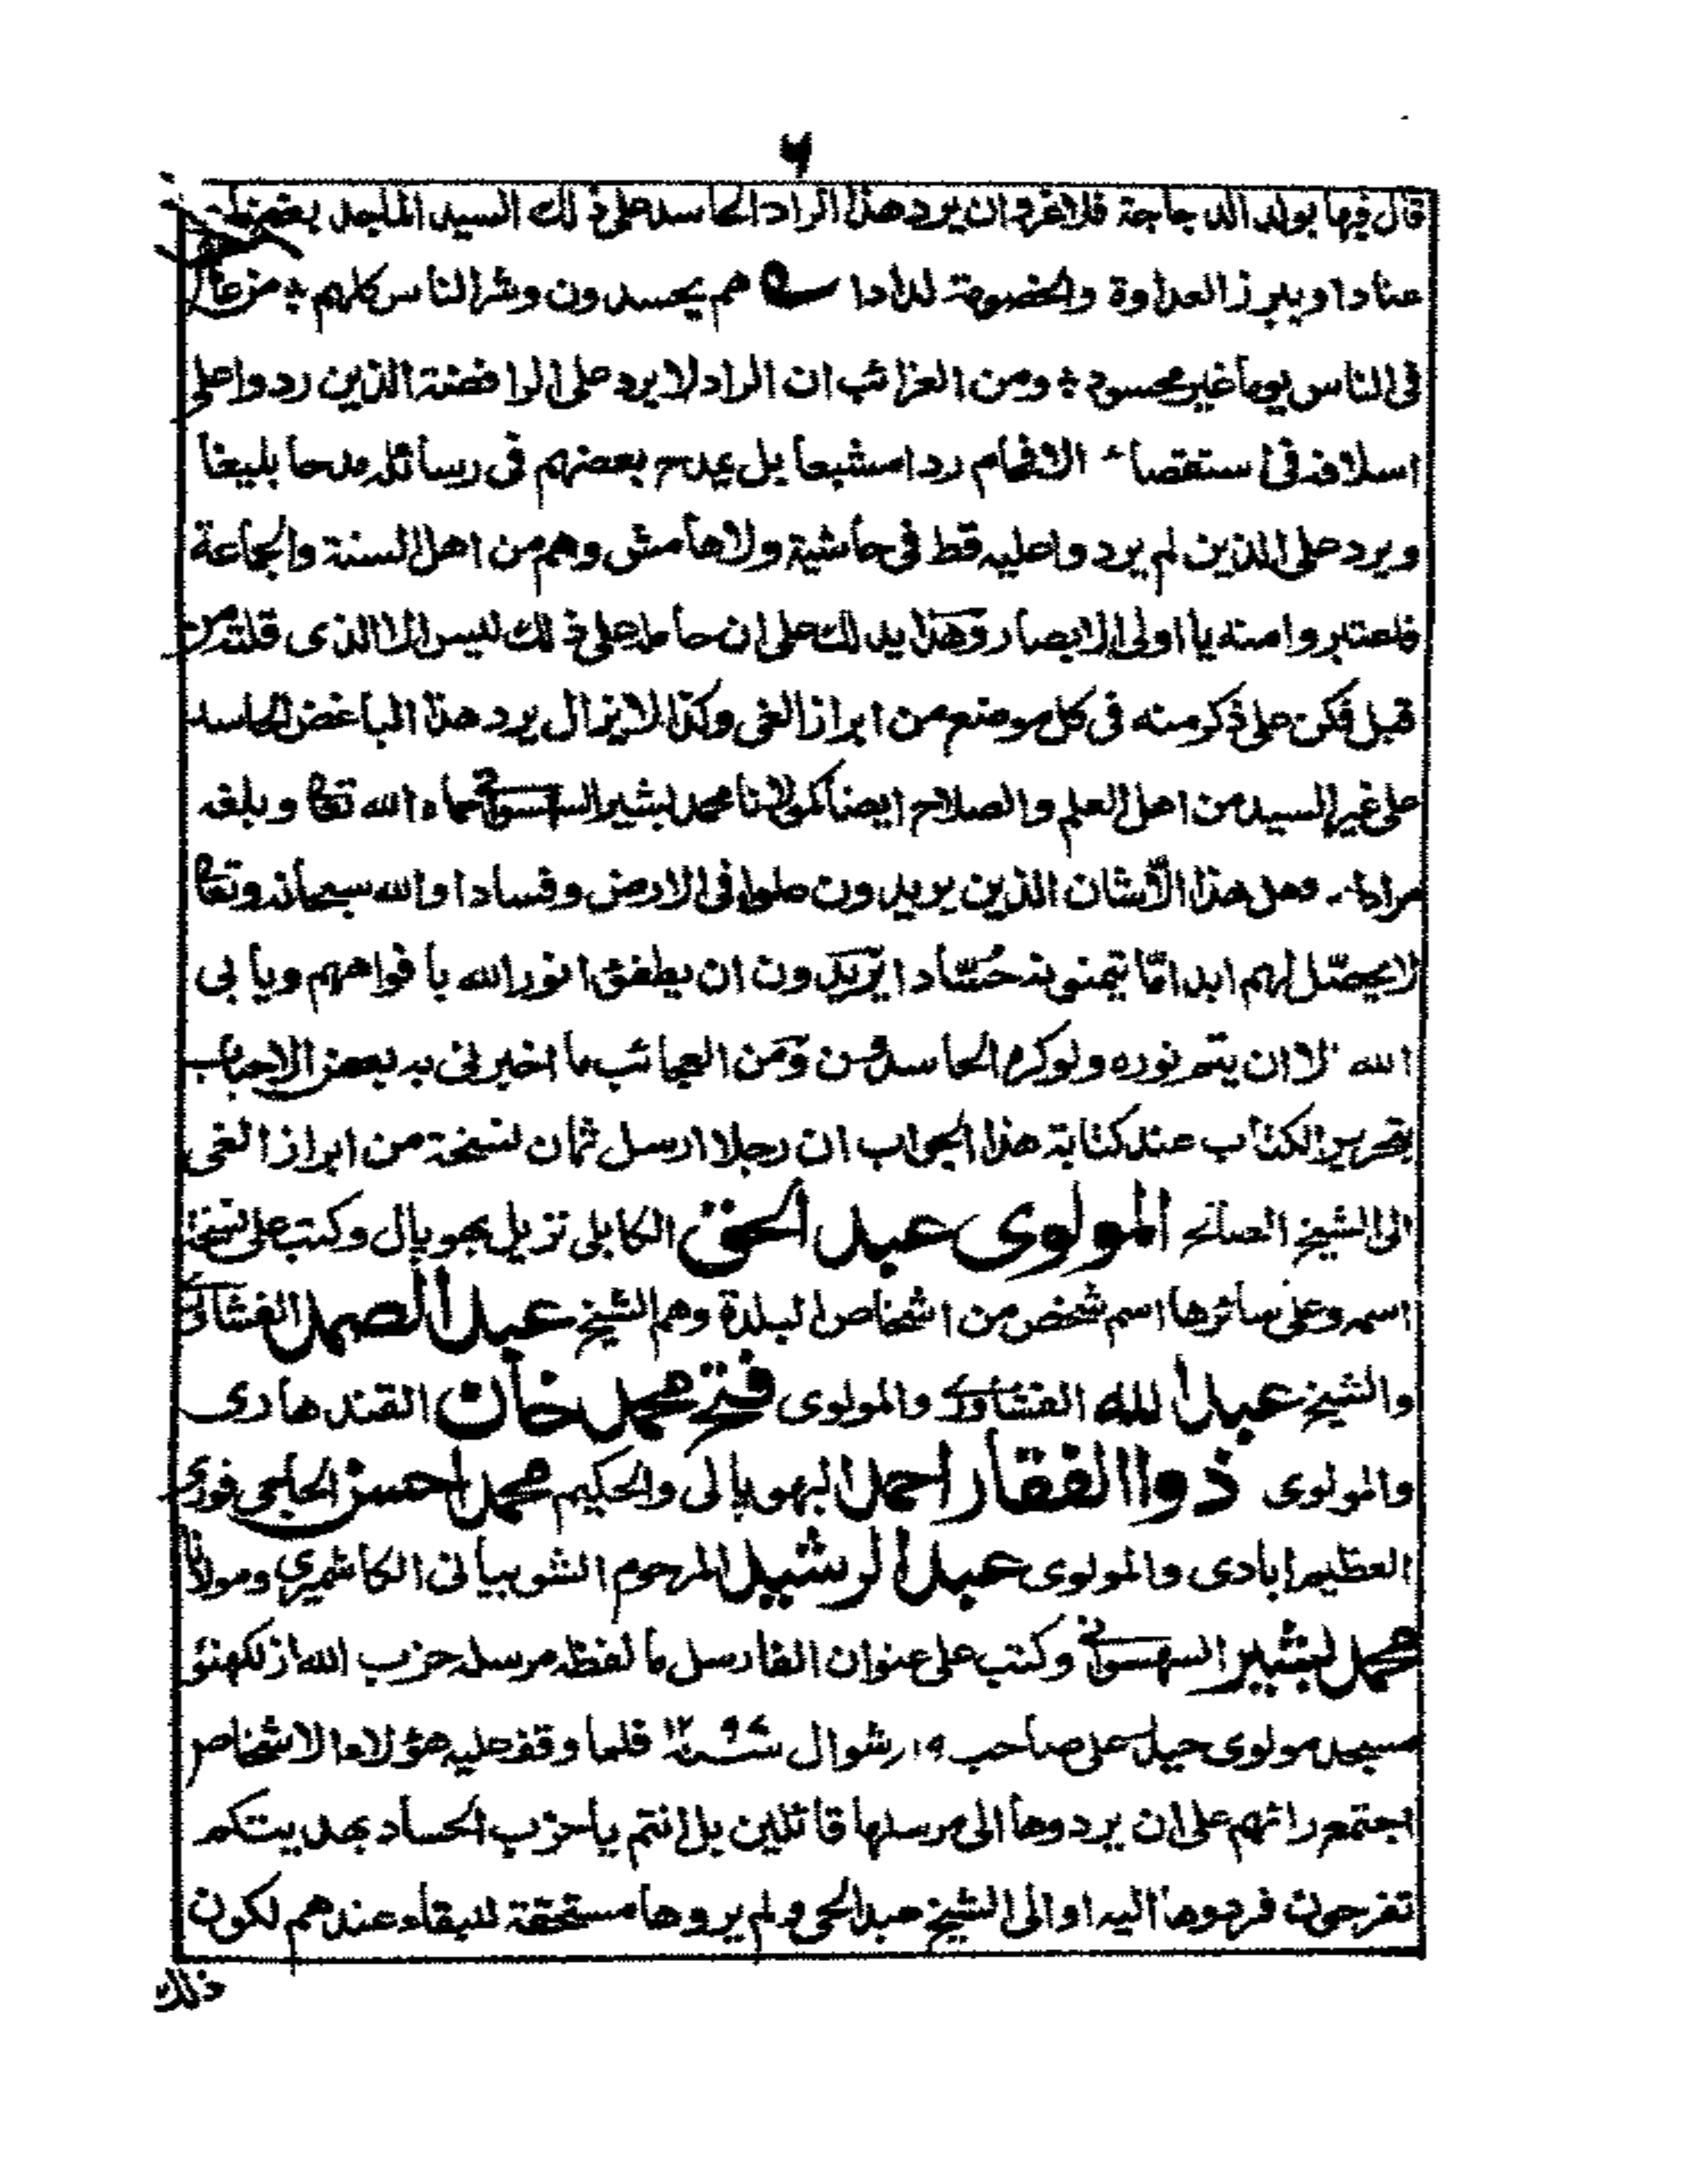 ٦
قال فيها بولد الدجاجة فلا غرو ان يرد هذا الراد الحاسد على ذلك السيد الماجد
عنادا ويبرز العداوة والخصومة لدادا هم يحسدون وشر الناس كلهم ٭ من عاش
فى الناس يوما غير محسود ٭ ومن العزائب ان الراد لا يرد على الرافضة الذين ردوا على
اسلافه فى استقصاء الافحام ردا مشبعا بل يمدح بعضهم فى رسائله مدحا بليغا
ويرد على الذين لم يردوا عليه قط فى حاشية ولا هامش وهم من اهل السنة والجماعة
فاعتبروا منه يا اولى الابصار وهذا يدلك على ان حامله على ذلك ليس الا الذى قلته من
قبل فكن على ذكر منه فى كل موضع من ابراز الغى وكذا لا يزال يرد هذا الباغض الحاسد
على غير السيد من اهل العلم والصلاح ايضا كمولانا محمد بشير السهسوانى حماه الله تعا وبلغه
مرامه وهل هذا الا شان الذين يريدون علوا فى الارض وفسادا والله سبحانه وتعا
لا يحصّل لهم ابدا مّا يتمنونه حُسّادا يريدون ان يطفؤا نور الله بافواههم ويأبى
الله الا ان يتم نوره ولو كره الحاسدون ومن العجائب ما اخبرنى به بعض الاحباب
بتحرير الكتاب عند كتابة هذا الجواب ان رجلا ارسل ثمان نسخة من ابراز الغى
الى الشيخ الصالح المولوى عبد الحق الكابلى نزيل بهوپال وكتب على نسخة
اسمه وعلى سائرها اسم شخص من اشخاص البلدة وهم الشيخ عبد الصمد الفشاورى
والشيخ عبد الله الفشاورى والمولوى فتح محمد خان القندهارى
والمولوى ذو الفقار احمد البهوپالى والحكيم محمد احسن الحاجى فورى
العظيم ابادى والمولوى عبد الرشيد المرحوم الشوبيانى الكاشميرى ومولانا
محمد بشير السهسوانى وكتب على عنوان الفارسل ما لفظه مرسله حزب الله از لكهنؤ
مسجد مولوى حيدر على صاحب ١٥ رشوال سنه ١٢٩٧ فلما وقف عليه هؤلاء الاشخاص
اجتمع رائهم على ان يردوها الى مرسلها قائلين بل انتم يا حزب الحساد بهديتكم
تفرحون فردوها اليه او الى الشيخ عبد الحى ولم يروها مستحقة للبقاء عندهم لكون
ذلك